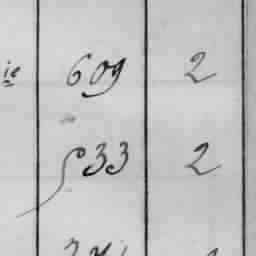 ie 609 2
533 2